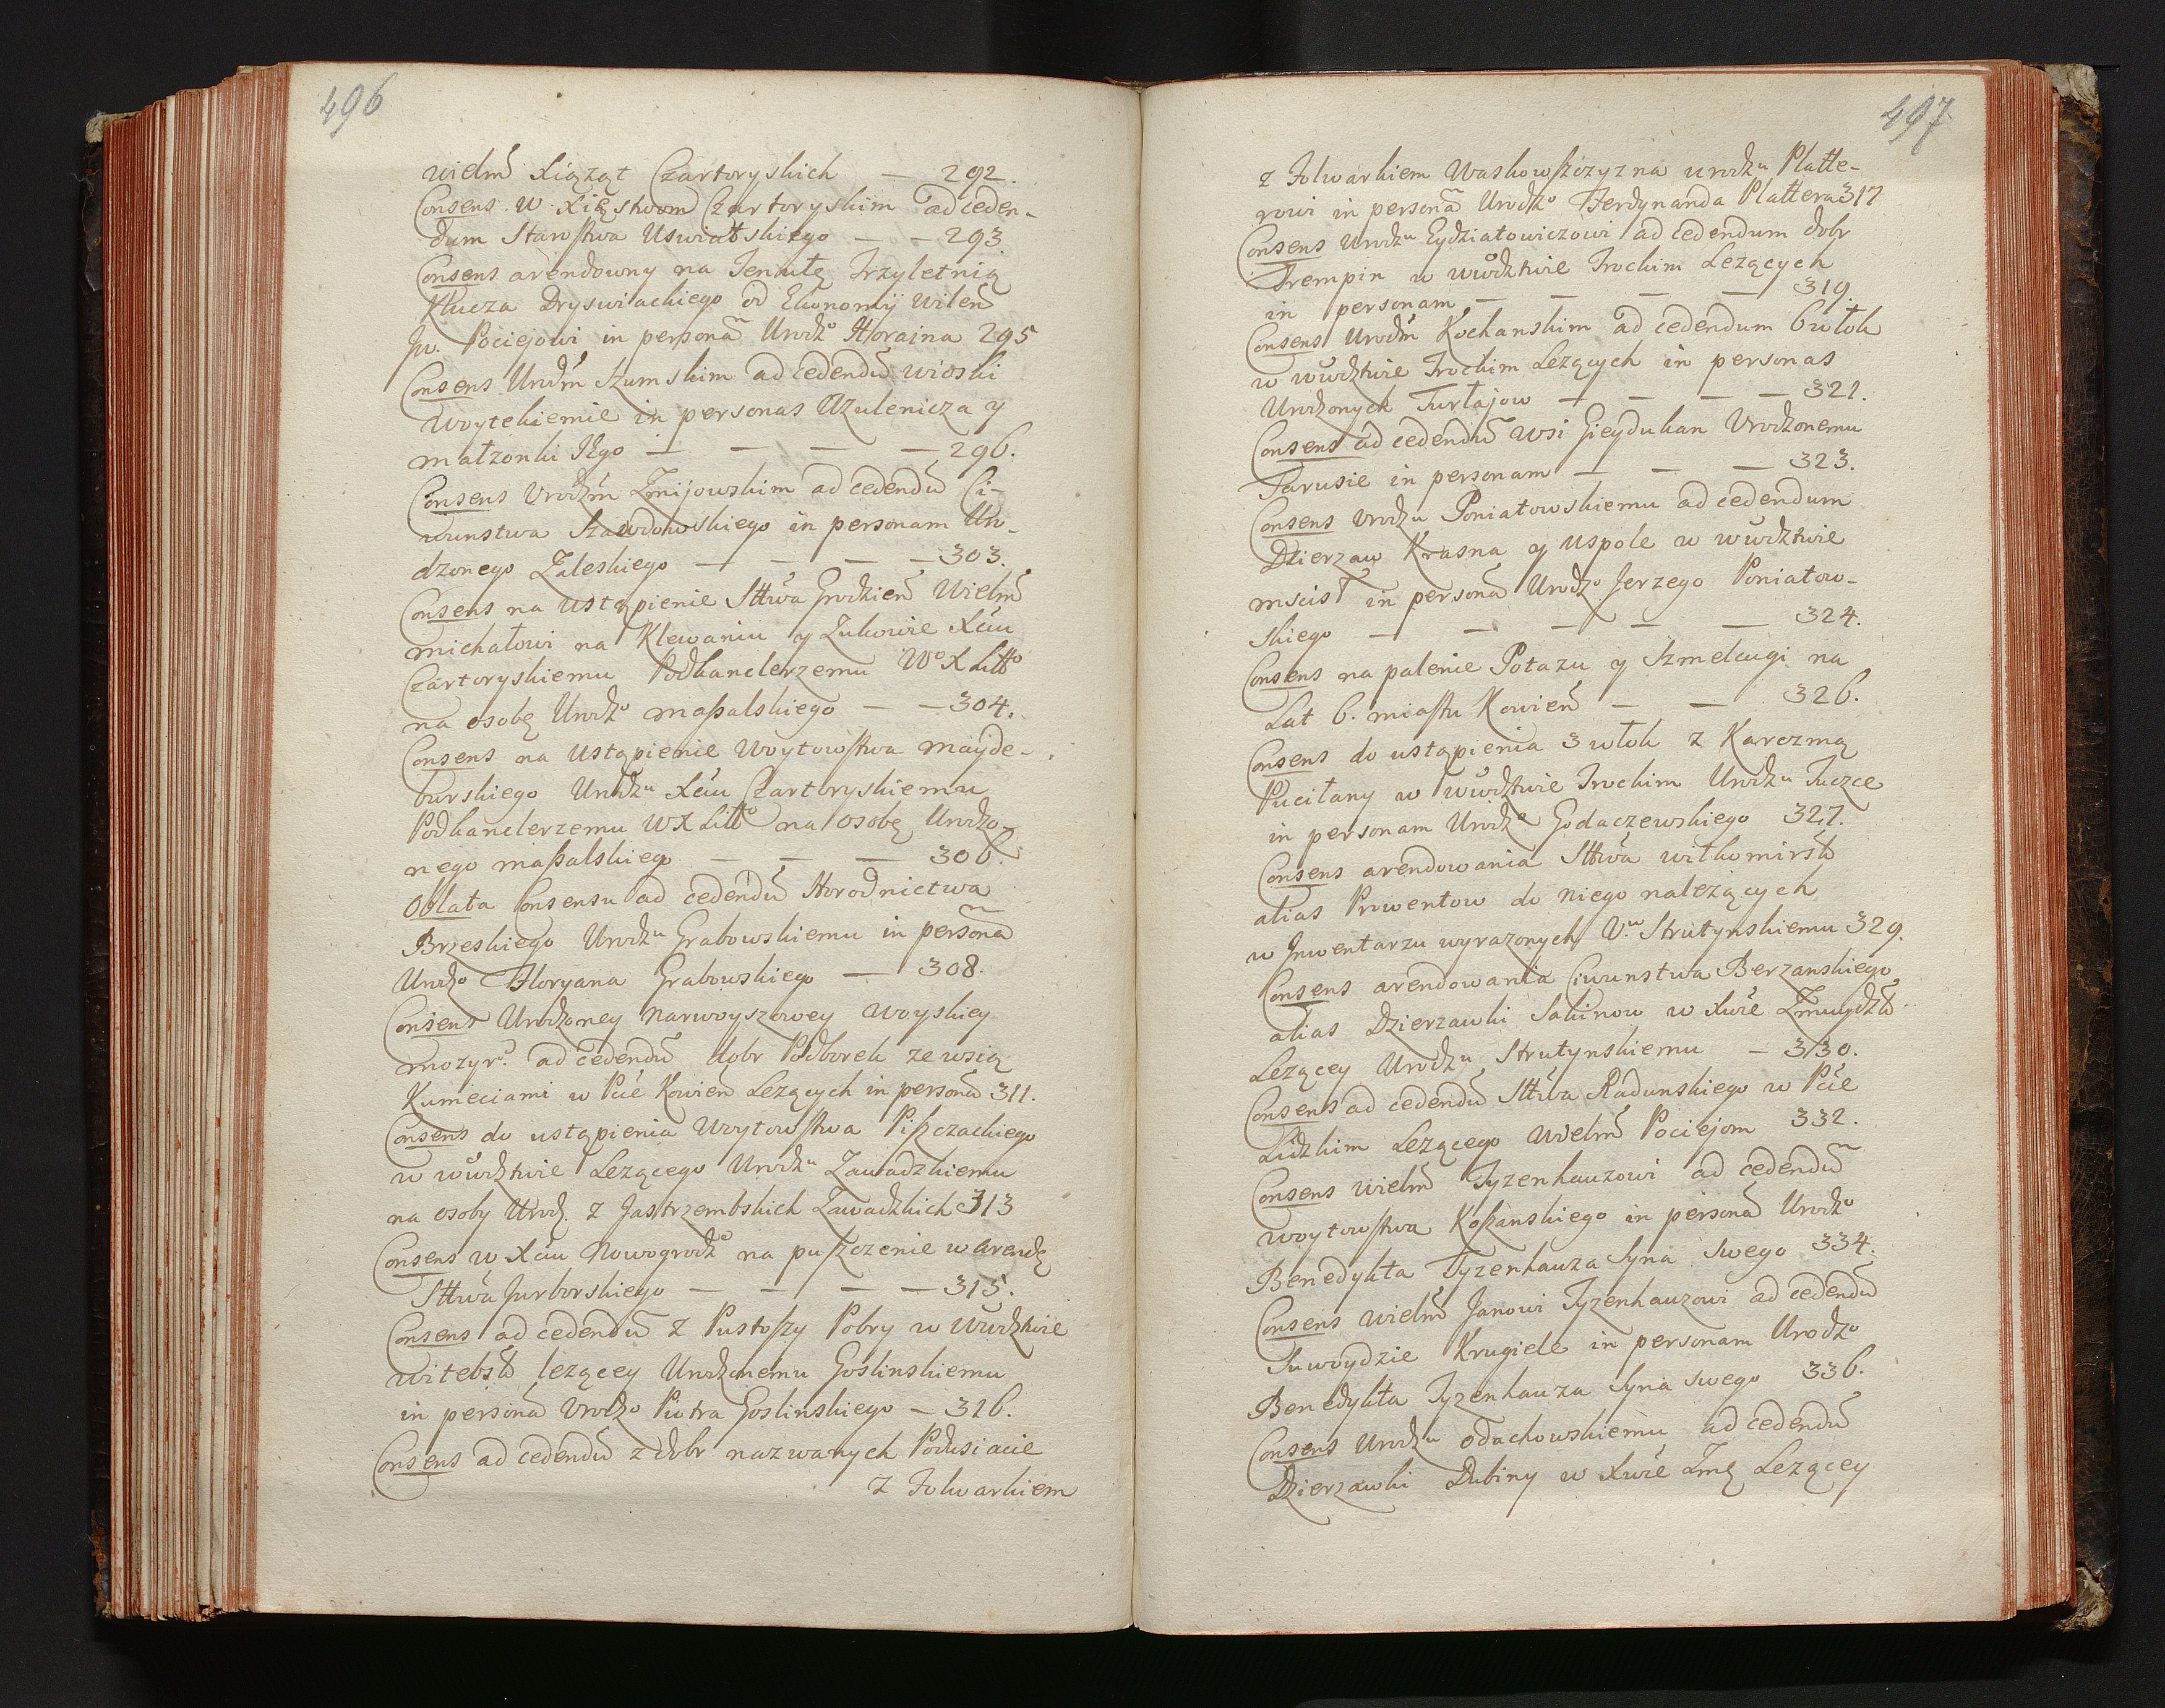 496
wielm̃ Xiążąt Czartoryskich — 292.
Consens W. Xięstwom Czartoryskim ad ceden-
dum Starostwa Uswiatskiego — — 293
Consens arendowny na Tenutę Trzyletnią
Klucza Dryswiackiego od Ekonomij Wileń
Jw. Pociejowi in personam̃ Urodzo Horaina 295
Consens Urdm̃ Szumskim ad cedendũ wioski
Woytekiemie in personas Uzulenicza y
małżonki Jego — — — — 296.
Consens Urodzm̃ Zmijowskim ad cedendũ Ci-
wunstwa Szawdowskiego in personam Uro-
dzonego Zaleskiego — — — — 303.
Consens na ustąpienie Sttwa Grodzień Wielm̃
michałowi na Klewaniu y Zukowie Xciu
Czartoryskiemu Podkanclerzemu Wo X Litto
na osobę Urodzo maszalskiego — — 304.
Consens na Ustąpienie Woytowstwa mayde-
burskiego Urodzu Xciu Czartoryskiemu
Podkanclerzemu WX Litto na osobę Urodzo-
nego maszalskiego — — — 306.
Oblata Consensu ad cedendũ Horodnictwa
Brzeskiego Urodzu Grabowskiemu in personã
Urodzo Floryana Grabowskiego — 308.
Consens Urodzoney Narwoyszowey Woyskiey
mozyro. ad cedendũ dobr Podborek ze wsią
Kumeciami w Pcie Kowień Leżących in personã 311.
Consens do ustąpienia Woytowstwa Piszczackiego
w wwdztwie Leżącego Urodzu Zawadzkiemu
na osoby Urodz. z Jastrzembskich Zawadzkich 313
Consens w Xciu Nowogrodzo na puszczenie w arendę
Sttwa Jurborskiego — — — — 315.
Consens ad cedendũ z Pustoszy Pobry w Wwdztwie
witebsk lezącey Urodzonemu Goslinskiemu
in personã Urodzo Piotra Goslinskiego — 316.
Consens ad cedendũ z dobr nazwanych Podusiacie
z Folwarkiem
497
z Folwarkiem Waskowszczyzna urodzu Platte-
rowi in personã Urodzo Ferdynanda Plattera 317
Consens Urodzu Eydziatowiczowi ad cedendum dobr
Trempin w wwdztwie Trockim Leżących
in personam — — — — 319.
Consens Urodm̃ Kochanskim ad cedendum 6 włok
w wwdztwie Trockim Leżących in personas
Urodzonych Turłajow — — — — 321.
Consens ad cedendũ Wsi Gieydukan Urodzonemu
Tarusie in personam — — — 323.
Consens Urodzu Poniatowskiemu ad cedendum
Dzierzaw Krasna y Uspole w wwdztwie
mscisł in personã Urodzo Jerzego Poniatow-
skiego — — — — — 324.
Consens na palenie Potazu y Szmelcugi na
Lat 6. miastu Kowień — — 326.
Consens do ustąpienia 3 włok z Karczmą
Pucilany w Wwdztwie Trockim Urodzu Tuczce
in personam Urodzo Godaczewskiego 327.
Consens arendowania Sttwa wiłkomirsk
alias Prowentow do niego nalezących
w Jnwentarzu wyrazonych U.u Strutynskiemu 329.
Consens arendowania Ciwunstwa Berzanskiego
alias Dzierzawki Sakinow w Xwie Zmuydzk
Lezącey Urodzu Strutynskiemu — 330.
Consens ad cedendũ Sttwa Radunskiego w Pcie
Lidzkim Lezącego Wielm̃ Pociejom 332.
Consens wielm̃ Tyzenhauzowi ad cedendũ
woytowstwa Koszanskiego in personã Urodzo
Benedykta Tyzenhauza Syna Swego 334.
Consens wielm̃ Janowi Tyzenhauzowi ad cedendũ
Juwoydzie Krugiele in personam Urodzo
Benedykta Tyzenhauza Syna swego 336.
Consens Urodzu Odachowskiemu ad cedendũ
Dzierzawki Dubiny w Xwie Zmę Lezącey